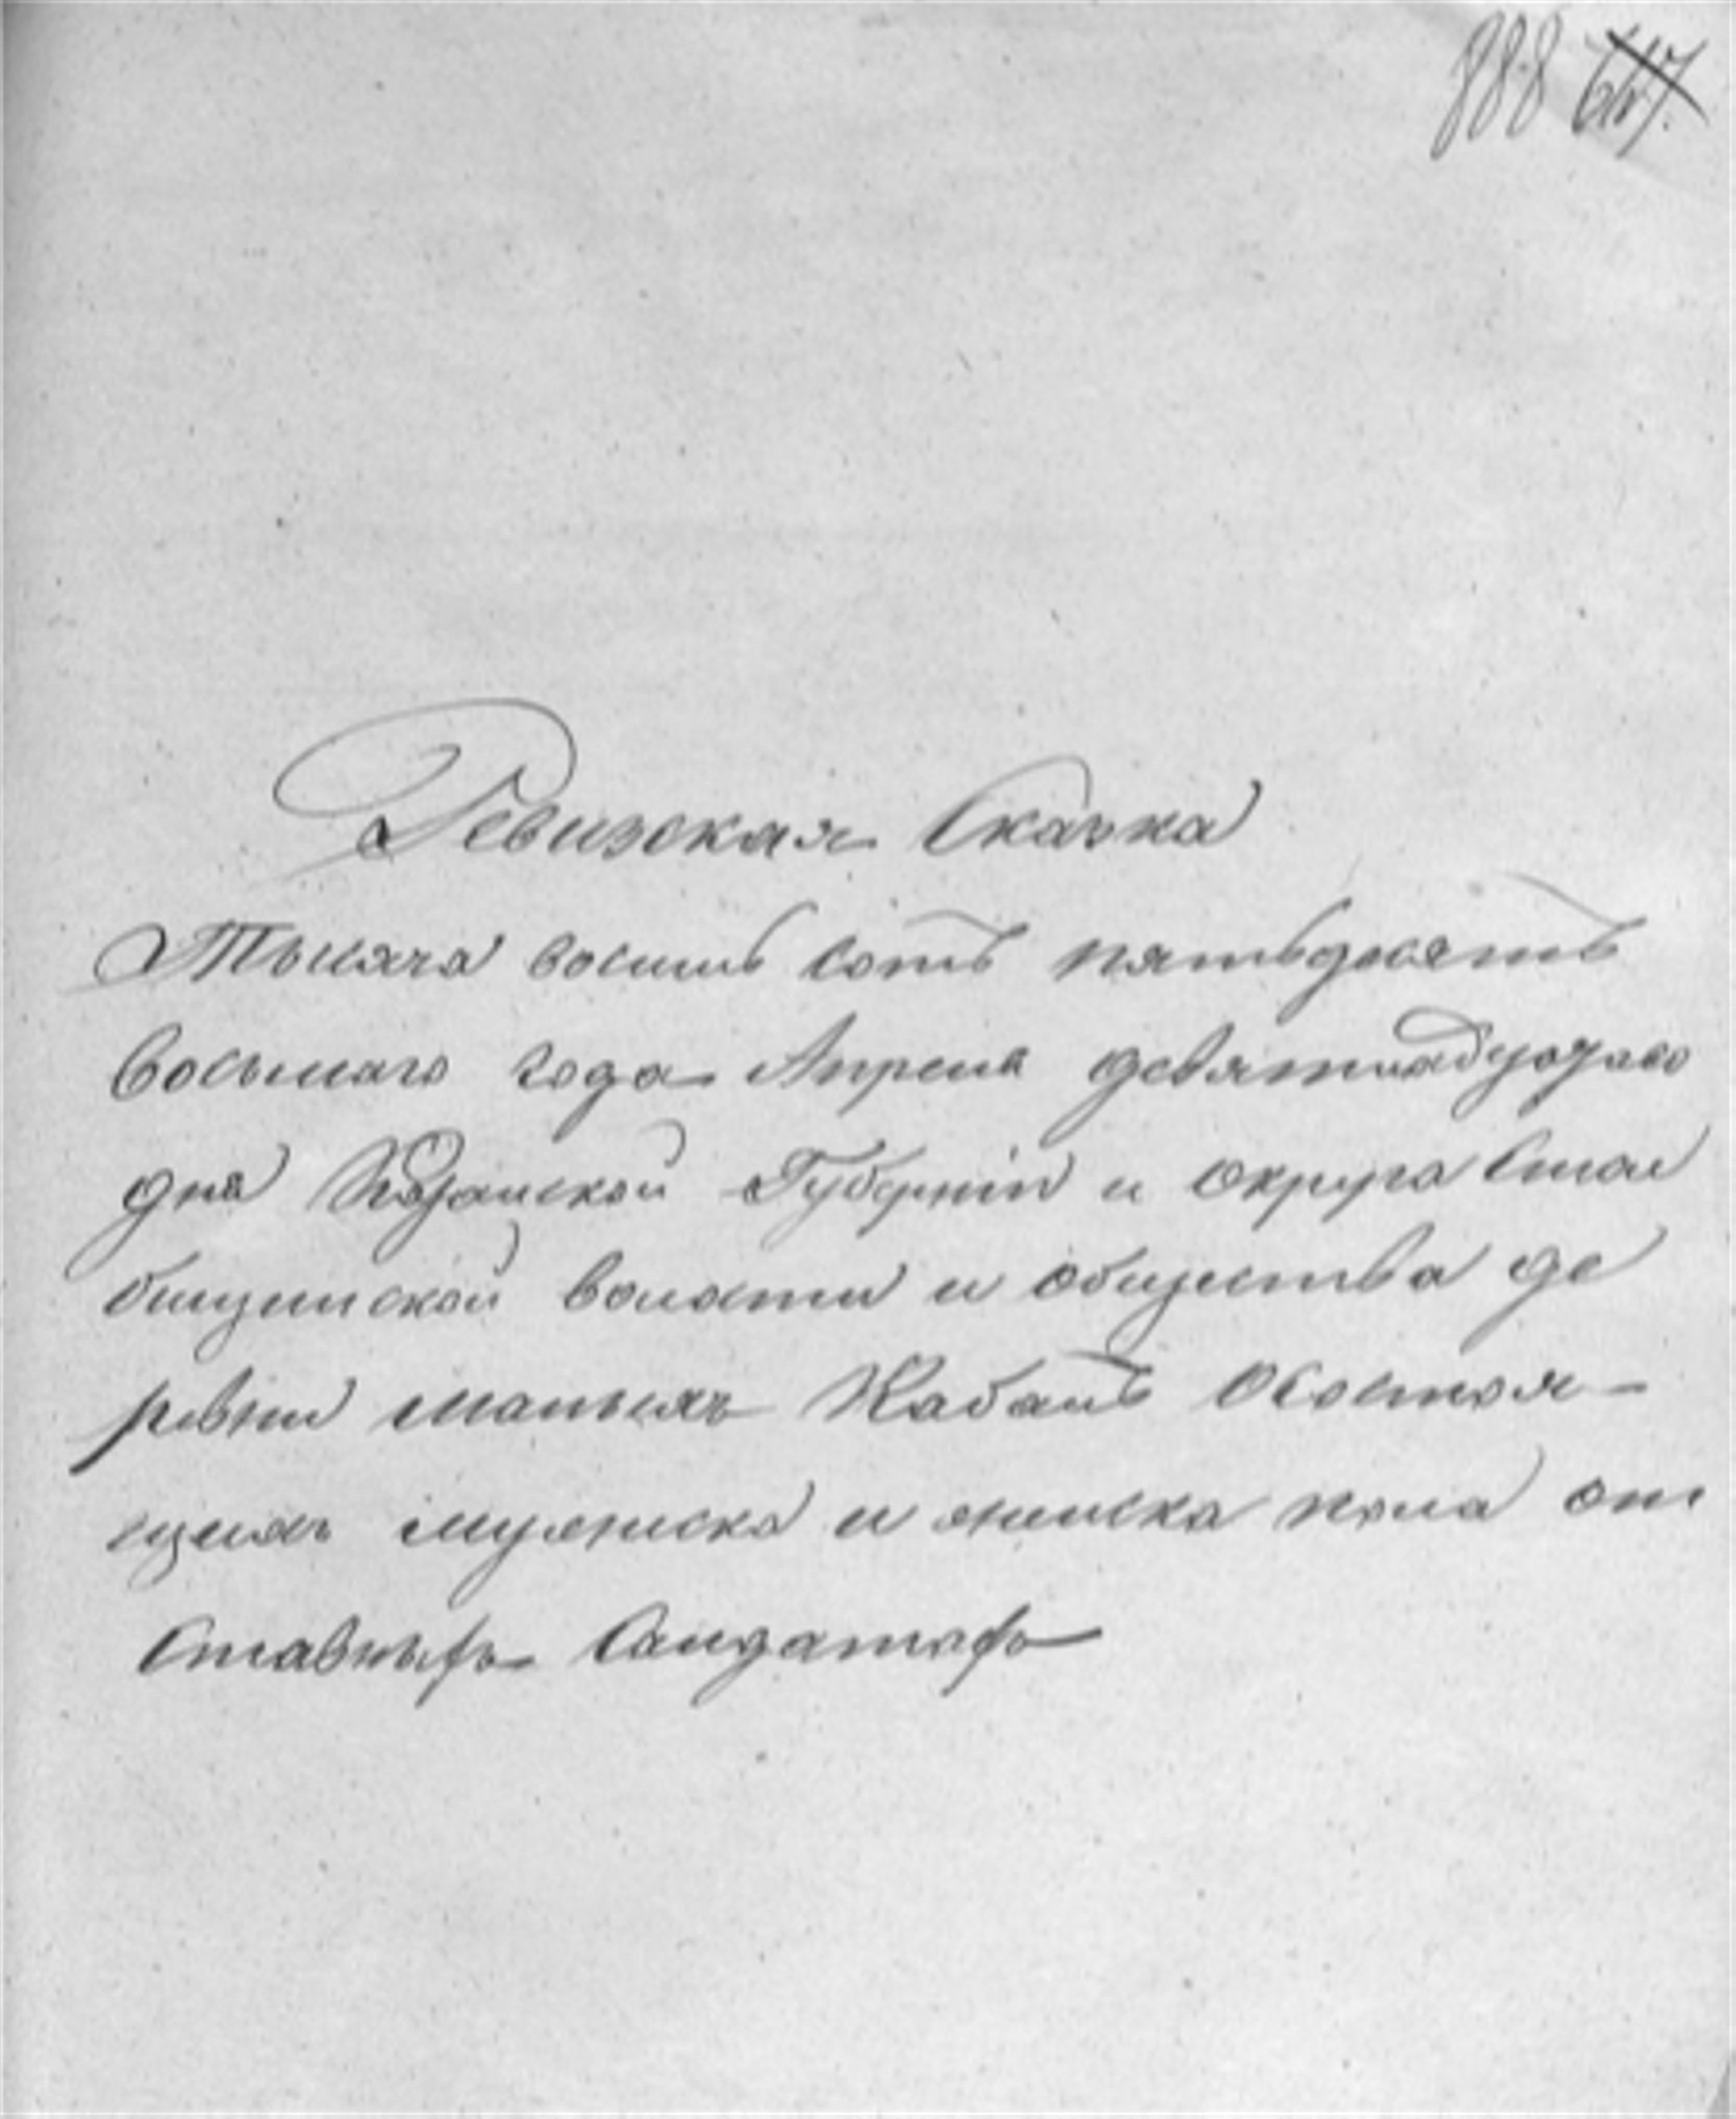 888 647.
Ревизская Сказка
Тысяча восемь сотъ пятьдесятъ
восьмаго года Апреля девятнадцатаго
дня Казанской Губерніи и округа Стол
бищинской волости и общества де
ревни малыхъ Кабанъ О состоя-
щихъ мужеска и женска пола от
ставныхъ Солдатахъ